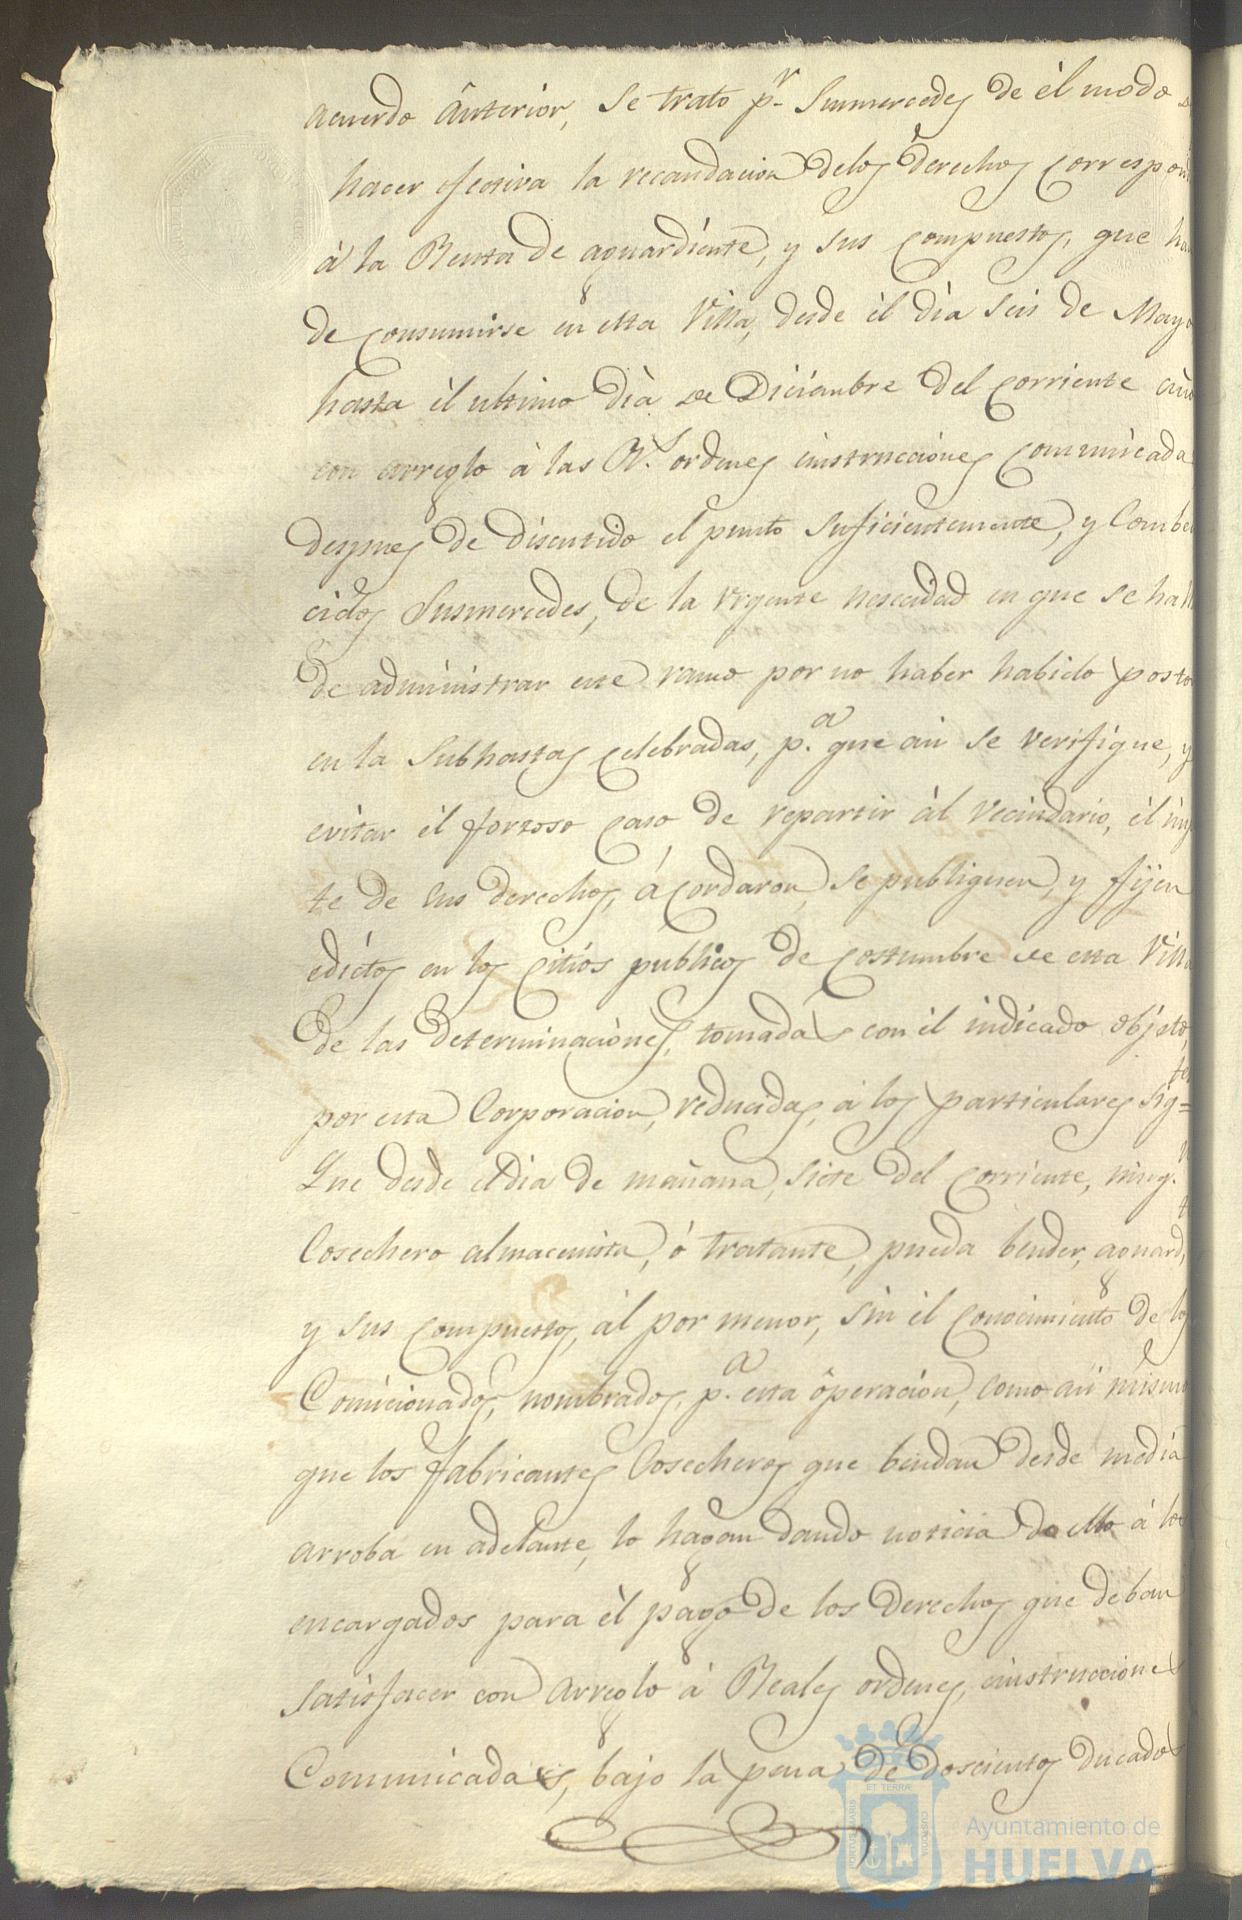 acuerdo ânterior, se trato p.r Susmercedes de él modo de
hacer efectiva la recaudacion delos derechos correspon
à la Renta de aguardiente, y sus compuestos, que han
de consumirse en esta Villa, desde èl dìa seis de Mayo
hasta èl ultimo dìa de Diciembre del corriente año
con arreglo à las R.s ordenes instrucciónes comunicada
despues de discutido el punto suficientemente, y Combe
cidos Susmercedes, de la urgente nesecidad en que se hall
de administrar este ramo por no haber habido posto
en la Subhastas celebradas, p.a que asi se verifique, y
evitar èl forzoso caso de repartir àl vecindario, èl imp
te de sus derechos, ácordaron se publiquen, y fijen
edictos en los citiós publicos de costumbre de esta Villa
de las determinaciònes, tomadas con èl indicado objeto
por esta Corporacion, reducidas, a los particulares sig=tes
Que desde el dia de mañana, siete del corriente, ning.n
Cosechero almacenista, ó tratante, pueda bender, aguard.te
y sus compuestos, àl por menor, sin èl conocimiento de los
Comicionados, nombrados, p.a esta ôperaciòn, como asi mismo
que los fabricantes Cosecheros que bendan desde media
arroba en adelante, lo hagan dando noticia de ello á los
encargados para èl pago de los derechos que deban
satisfacer con arreglo à Reales ordenes, instrucciones
Comunicadas, bajo la pena de doscientos ducados
ET TERRAE
PORTUS MARIS
CUSTODIA
Ayuntamiento de
HUELVA